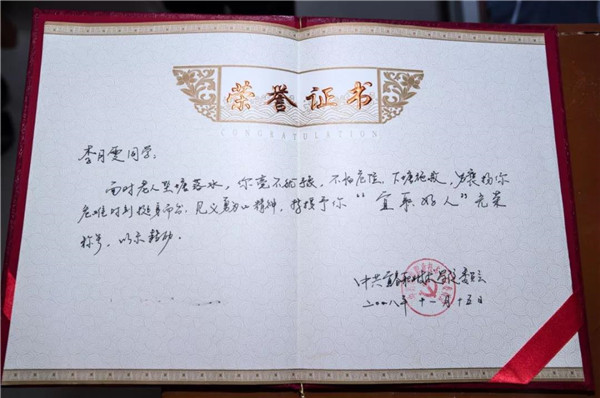 荣誉证书
CONGRATULATION
李月雯同学:
面对老人坠塘落水,你毫不犹豫,不怕危险,下塘施救,为褒扬你
危难时刻挺身而出,见义勇为的精神,特授予你“宜职好人”光荣
称号,以示鼓励。
中共宜春职业技术学院委员会
二〇一八年十一月十五日